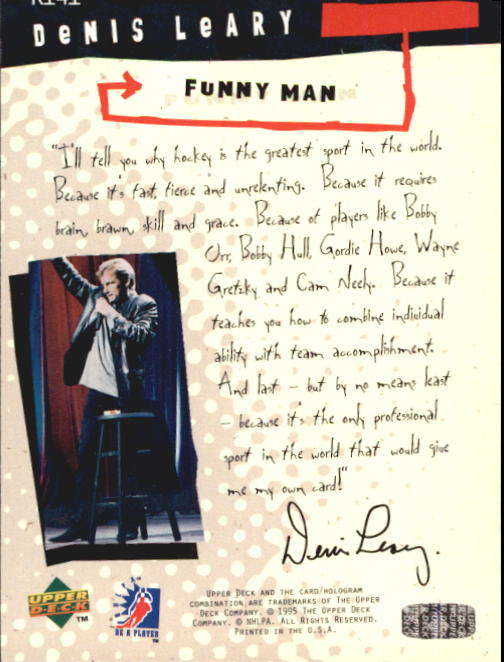 DENIS LEARY
FUNNY MAN
"I'll tell you why hockey is the greatest sport in the world.
Because it's fast, fierce and unrelenting. Because it requires
brain, brawn, skill and grace. Because of players like Bobby
Orr, Bobby Hull, Gordie Howe, Wayne
Gretzky and Cam Neely. Because it
teaches you how to combine individual
ability with team accomplishment.
And last – but by no means least
– because it's the only professional
sport in the world that would give
me my own card!"
Denis Leary.
UPPER
DECK
TM
BE A PLAYER
TM
UPPER DECK AND THE CARD/HOLOGRAM
COMBINATION ARE TRADEMARKS OF THE UPPER
DECK COMPANY. © 1995 THE UPPER DECK
COMPANY. © NHLPA. ALL RIGHTS RESERVED.
PRINTED IN THE U.S.A.